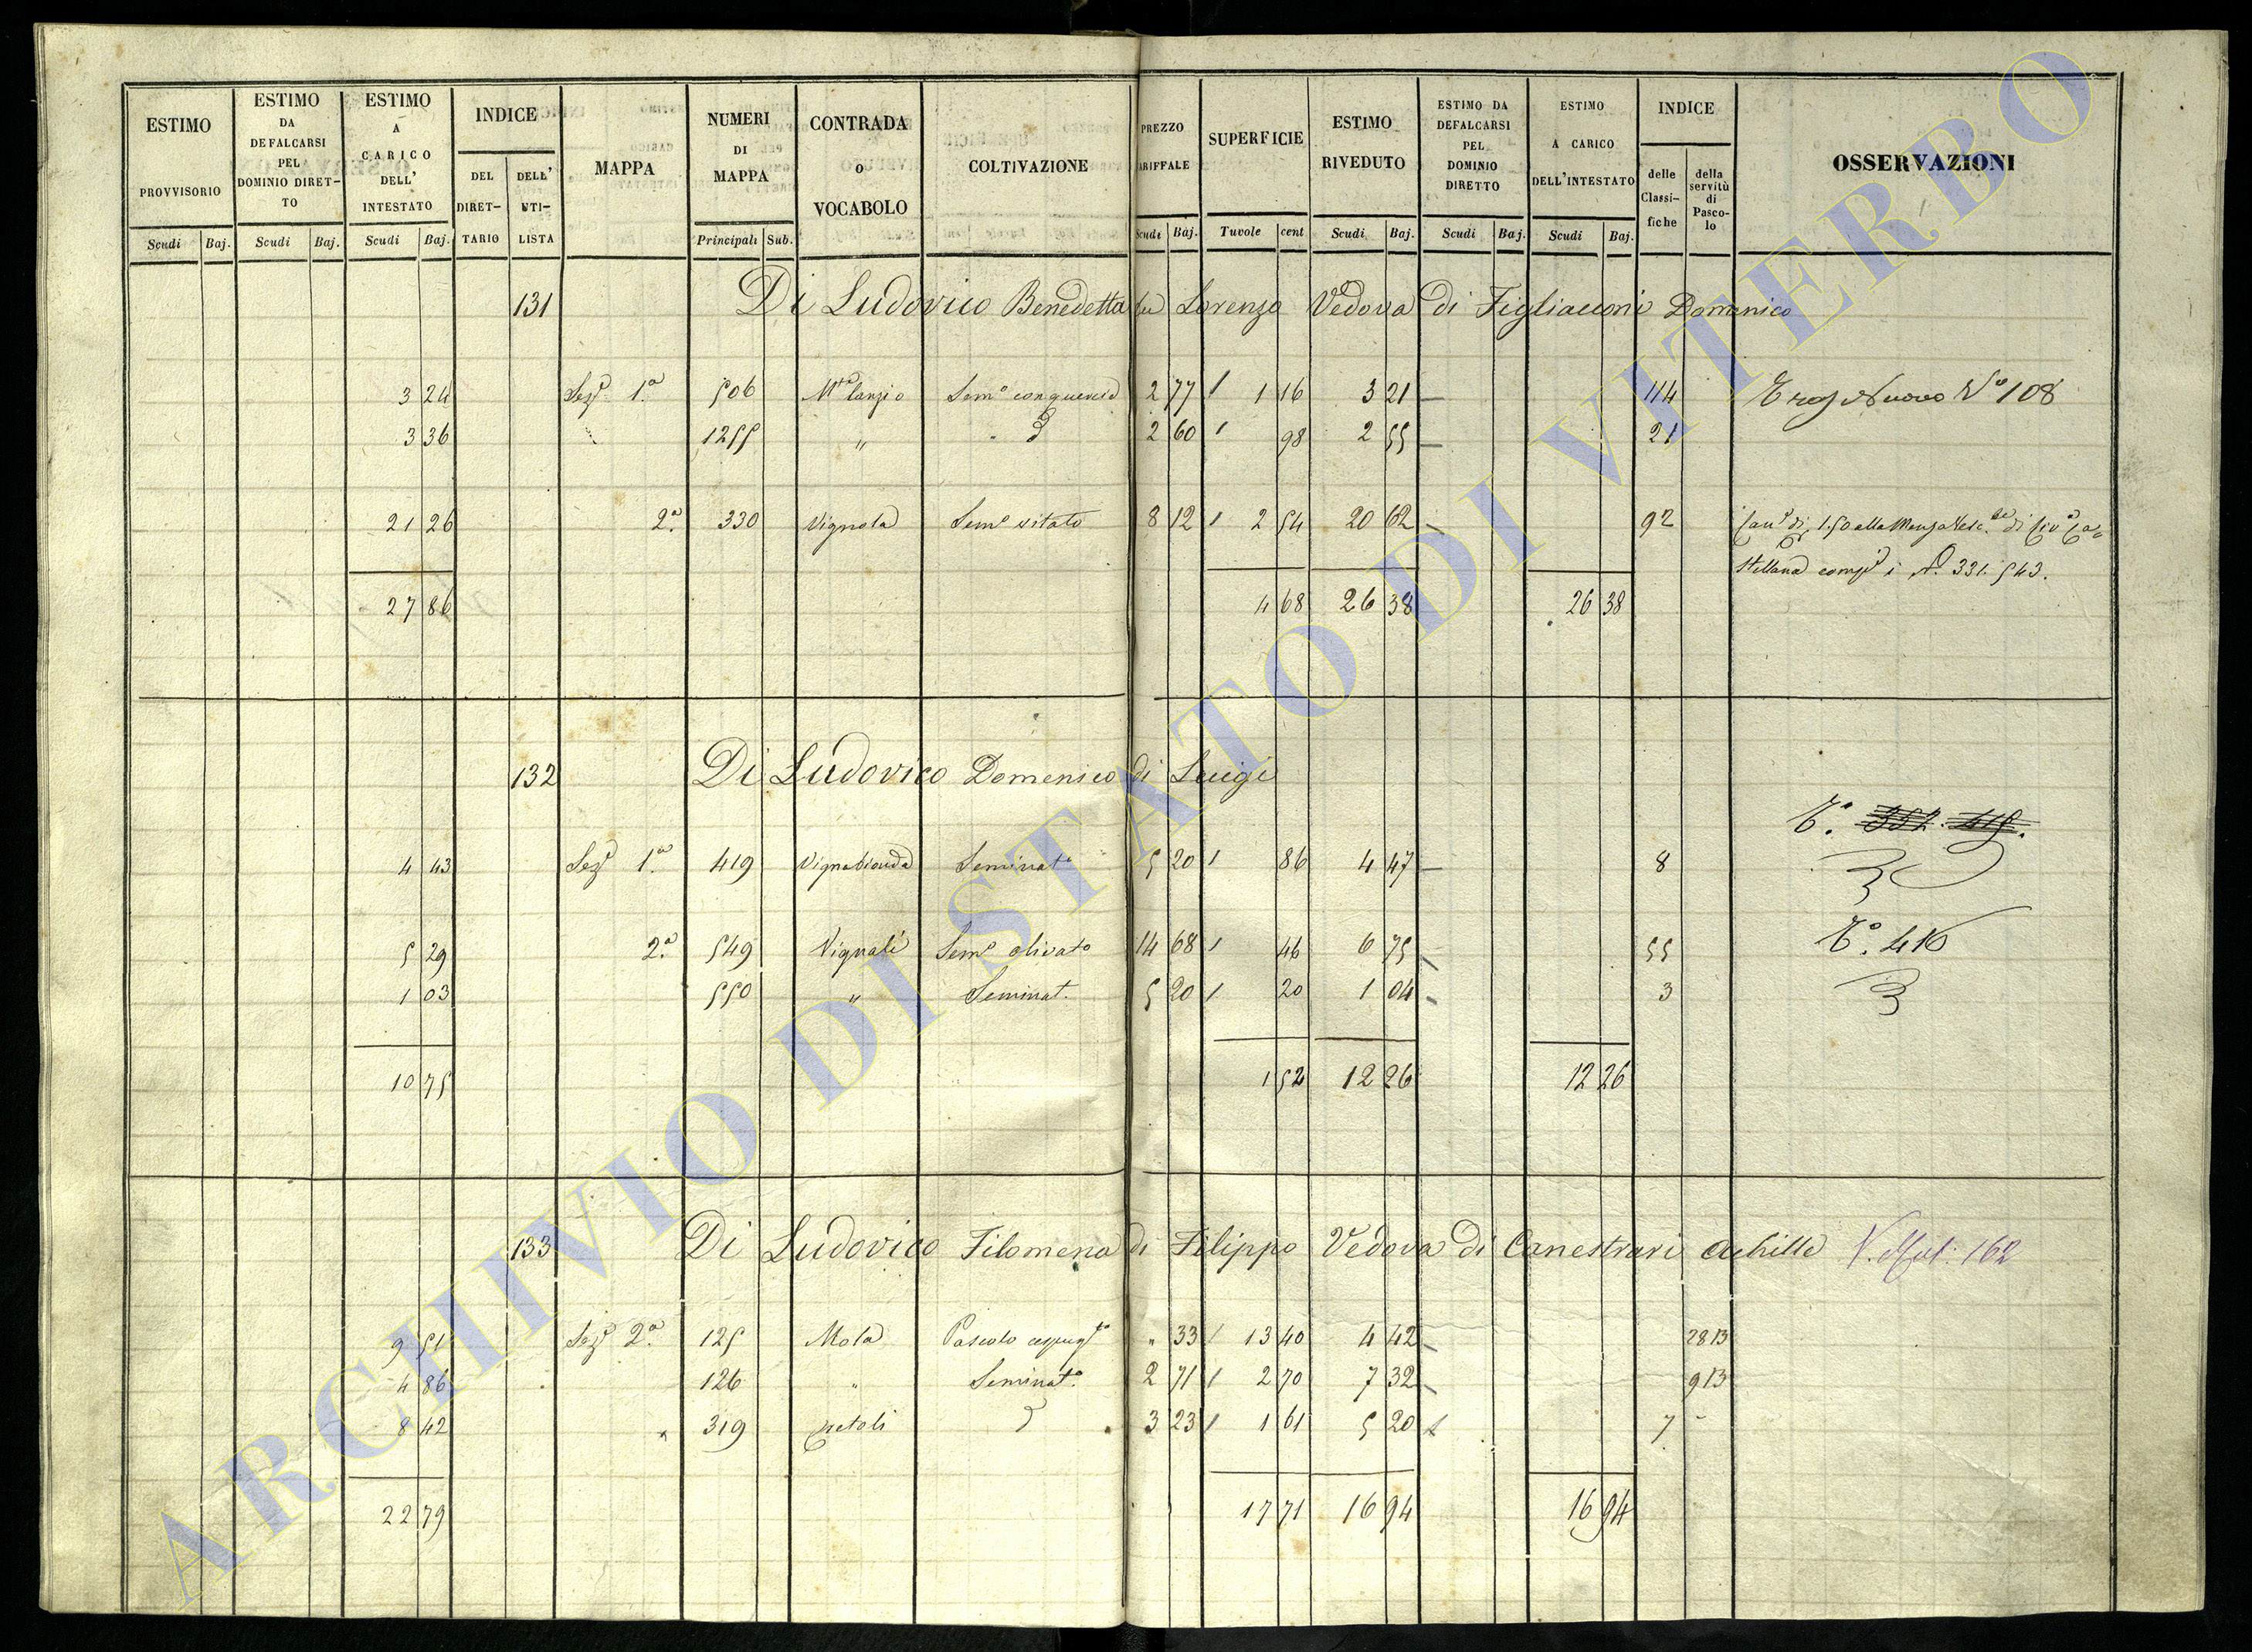 ESTIMO PROVVISORIO Scudi Baj.
ESTIMO DA DEFALCARSI PEL DOMINIO DIRET-TO Scudi Baj.
ESTIMO A CARICO DELL' INTESTATO Scudi Baj.
INDICE DEL DIRET-TARIO DELL' UTI-LISTA
MAPPA
NUMERI DI MAPPA Principali Sub.
CONTRADA o VOCABOLO
COLTIVAZIONE
PREZZO ARIFFALE Scudi Baj.
SUPERFICIE Tavole cent
ESTIMO RIVEDUTO Scudi Baj.
ESTIMO DA DEFALCARSI PEL DOMINIO DIRETTO Scudi Baj.
ESTIMO A CARICO DELL'INTESTATO Scudi Baj.
INDICE delle Classi-fiche della servitù di Pasco-lo
OSSERVAZIONI
131 Di Ludovico Benedetta fu Lorenzo Vedova di Figliacconi Domenico
3 24 Sezᵉ 1ª 506 Lanzio Semº con querce 2 77 1 1 16 3 21 114 Nuovo Nº 108
3 36 1255 " 2 60 1 98 2 55 21
21 26 2ª 330 Vignola Semº vitato 8 12 1 2 54 20 62 92 1.50 alla Mensa di Civª Ca=
stellana 331. 543.
27 86 4 68 26 38 26 38
132 Di Ludovico Domenico di Luigi
4 43 Sezᵉ 1ª 419 Seminatº 5 20 1 86 4 47 8
5 29 2ª 549 Vignali Semº olivato 14 68 1 46 6 75 55 416
1 03 550 " Seminat. 5 20 1 20 1 04 3
10 75 1 52 12 26 12 26
133 Di Ludovico Filomena di Filippo Vedova di Canestrari Achille 162
9 51 Sezᵉ 2ª 125 Mola Pascolo cespugtº " 33 1 13 40 4 42 28 13
4 86 126 " Seminatº 2 71 1 2 70 7 32 9 13
8 42 " 319 3 23 1 1 61 5 20 7
22 79 17 71 16 94 16 94
ARCHIVIO DI STATO DI VITERBO